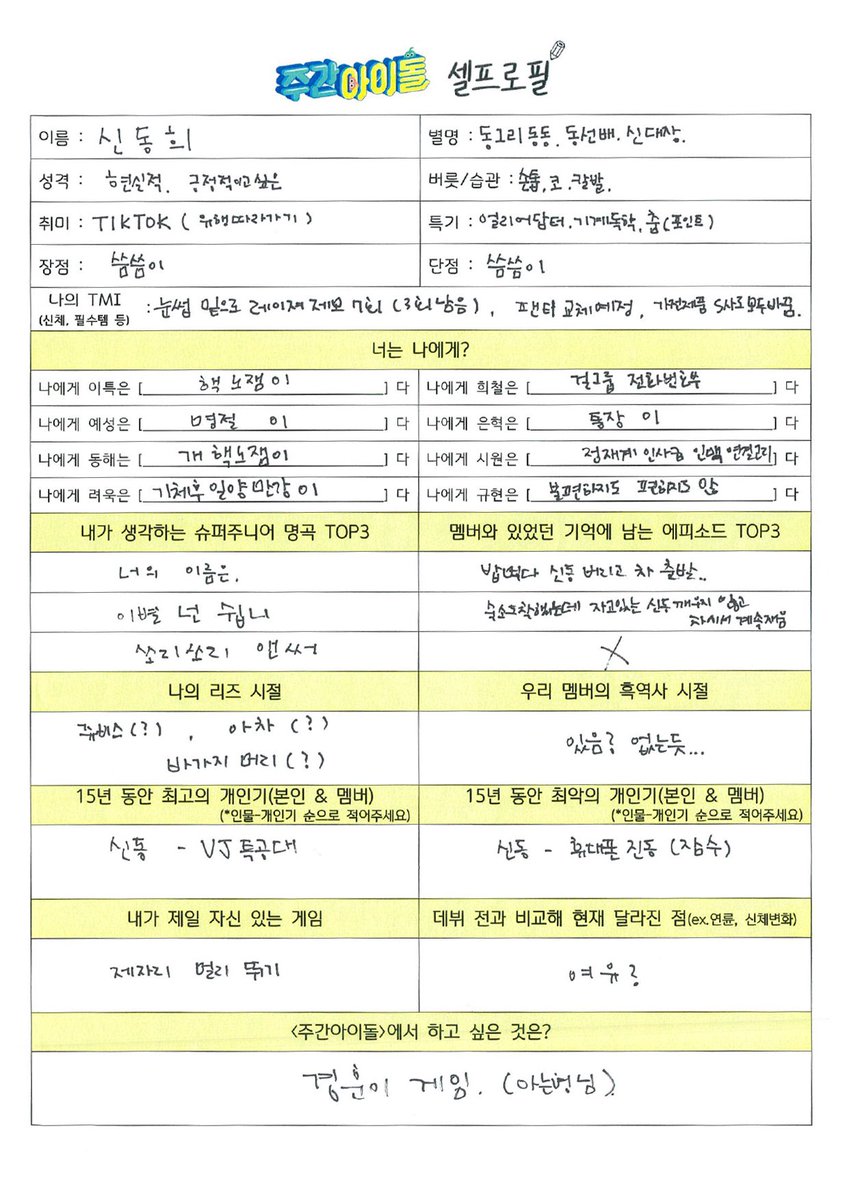 주간아이돌 셀프로필
이름 : 신동희
별명 : 동그리동동, 동선배. 신대장.
성격 : 현실적, 긍정적이고싶은
버릇/습관 : 손톱, 코, 칼발,
취미 : TIKTOK ( 유행따라가기 )
특기 : 얼리어답터, 기계독학, 춤(포인트)
장점 : 씀씀이
단점 : 씀씀이
나의 TMI : 눈썹 밑으로 레이져 제모 7회 (3회남음) , 팬티 교체예정, 가전제품 S사로모두바꿈.
(신체, 필수템 등)
너는 나에게?
나에게 이특은 [ 핵노잼이 ] 다
나에게 희철은 [ 걸그룹 전화번호부 ] 다
나에게 예성은 [ 명절 이 ] 다
나에게 은혁은 [ 통장 이 ] 다
나에게 동해는 [ 개핵노잼이 ] 다
나에게 시원은 [ 정재계 인사급 인맥 연결고리 ] 다
나에게 려욱은 [ 기체후일양만강이 ] 다
나에게 규현은 [ 불편하지도 편하지도 않 ] 다
내가 생각하는 슈퍼주니어 명곡 TOP3
멤버와 있었던 기억에 남는 에피소드 TOP3
너의 이름은,
밥먹다 신동 버리고 차 출발..
이별 넌 쉽니
숙소도착했는데 자고있는 신동깨우지 않고
차에서 계속재움
쏘리쏘리 앤써
X
나의 리즈 시절
우리 멤버의 흑역사 시절
쥬비스(?) , 아차 (?)
바가지 머리 (?)
있음? 없는듯...
15년 동안 최고의 개인기(본인 & 멤버)
(*인물-개인기 순으로 적어주세요)
15년 동안 최악의 개인기(본인 & 멤버)
(*인물-개인기 순으로 적어주세요)
신동 - VJ특공대
신동 - 휴대폰 진동 (잠수)
내가 제일 자신 있는 게임
데뷔 전과 비교해 현재 달라진 점(ex.연륜, 신체변화)
제자리 멀리 뛰기
여유?
<주간아이돌>에서 하고 싶은 것은?
경훈이 게임. (아는형님).